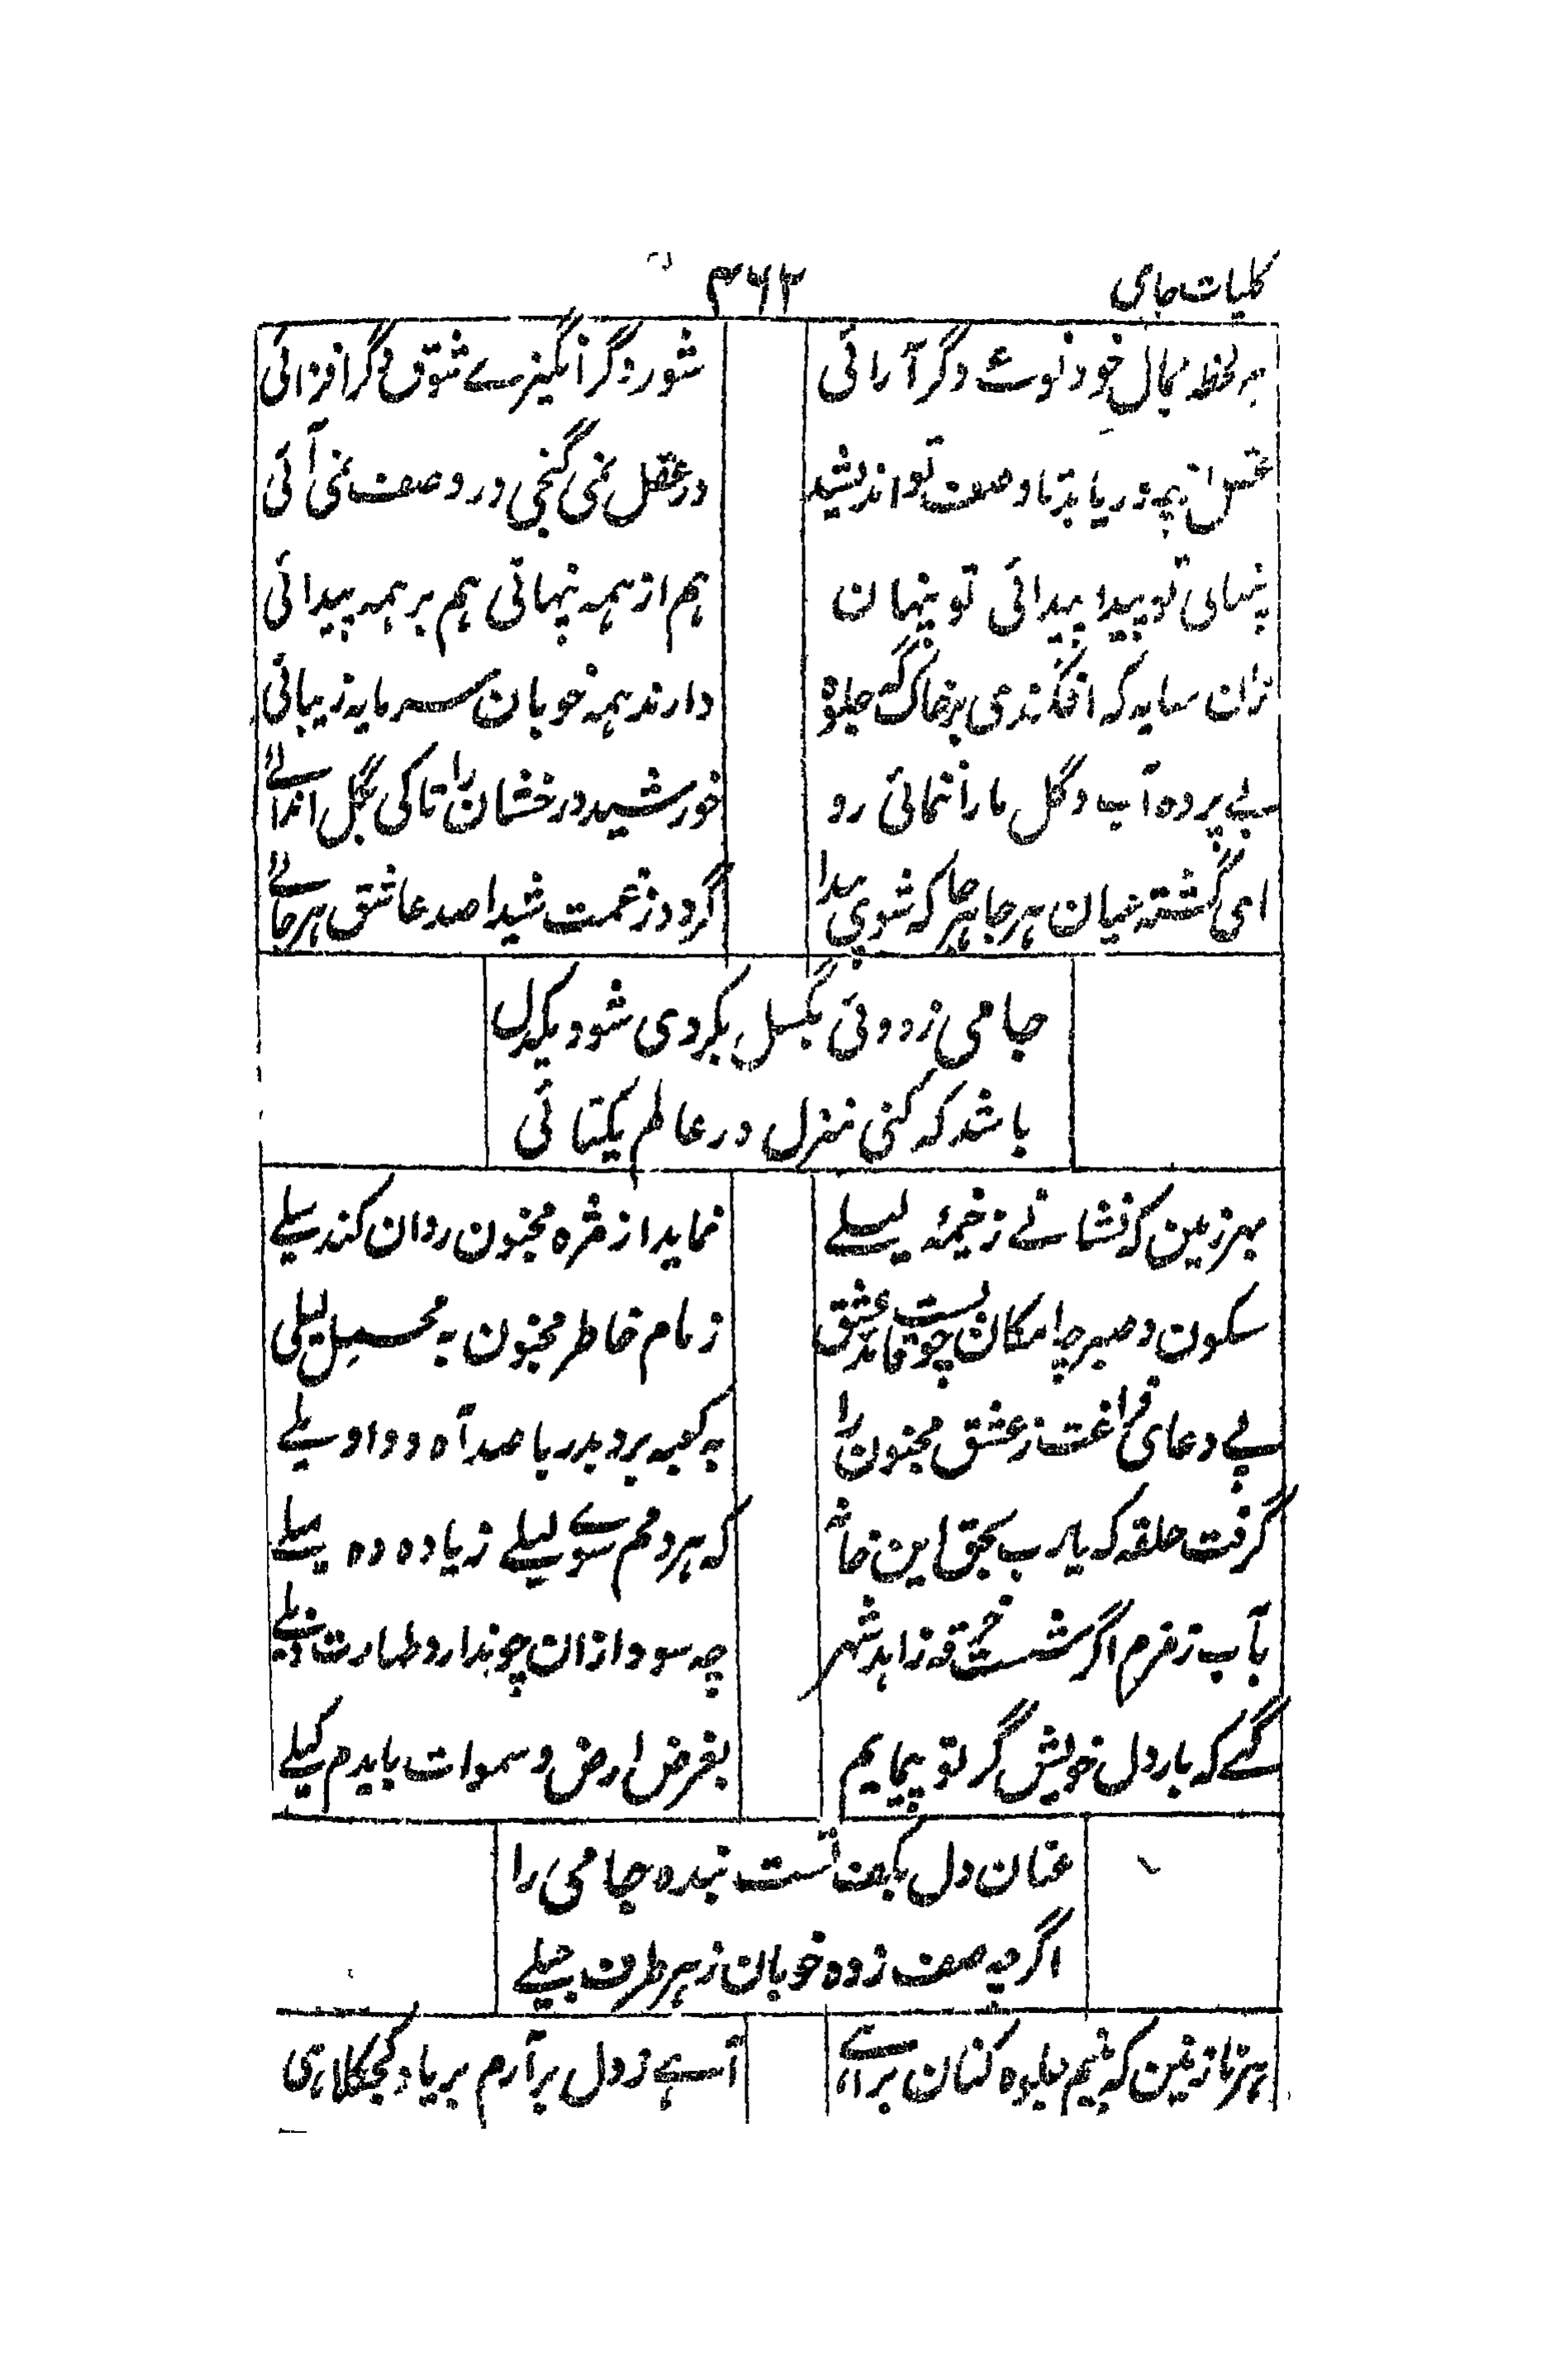 کلیات جامی
۳۶۲
هر لحظه جمال خود نوع دگر آرائی
شور دگر انگیزے شوق دگر افزائی
عقل از چه دریابد تا وصف تو اندیشد
در عقل نمی گنجی در وصف نمی آئی
پنهانی تو پیدا پیدائی تو پنهان
هم از همه پنهانی هم بر همه پیدائی
زان سایه که افگندی بر خاک گه جلوه
دارند همه خوبان سرمایه زیبائی
بے پرده آب و گل مارا ننمائی رو
خورشید درخشان را تا کی بگل اندائے
ای گشته عیان هر جا هر جا که شوی پیدا
گردد ز غمت شیدا صد عاشق هرجائے
جامی ز دوئی بگسل یکروی شو و یکدل
باشد که کنی منزل در عالم یکتائی
بهر زمین که نشانے ز خیمهٔ لیلے
نماید از مژه مجنون روان کند سیلے
سکون و صبر چه امکان چو بست قائد عشق
زمام خاطر مجنون به محمل لیلی
پے دعای فراغت ز عشق مجنون را
به کعبه برد پدر با صد آه و واویلے
گرفت حلقه که یارب بحق این خانه
که هر دمم سوے لیلے زیاده ده میلے
بآب زمزم اگر شست خرقه زاهد شهر
چه سود ازان چو ندارد طهارت ذیلے
گهے که بار دل خویش گر تو پیمایم
بفرض ارض و سموات بایدم کیلے
عنان دل بکف تست بنده جامی را
اگرچه صف زده خوبان ز هر طرف خیلے
هر نازنین که بینم جلوه کنان براهے
آهے ز دل برآرم بر یاد کجکلاهی